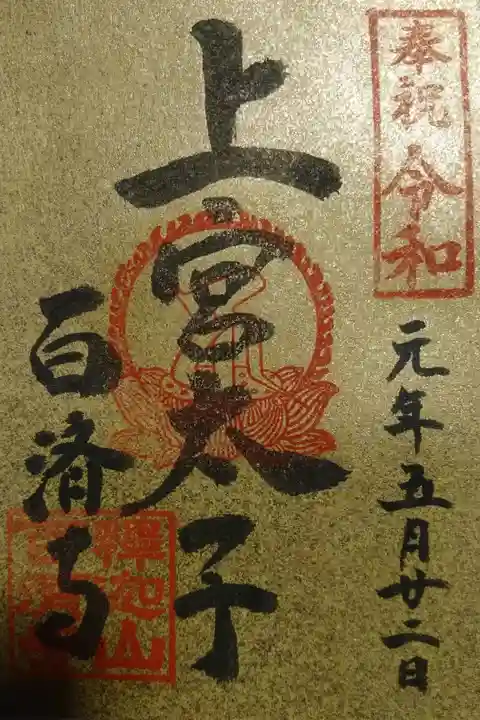 奉祝 令和
元年五月廿二日
上宮太子
百済寺
釋迦山
百濟寺